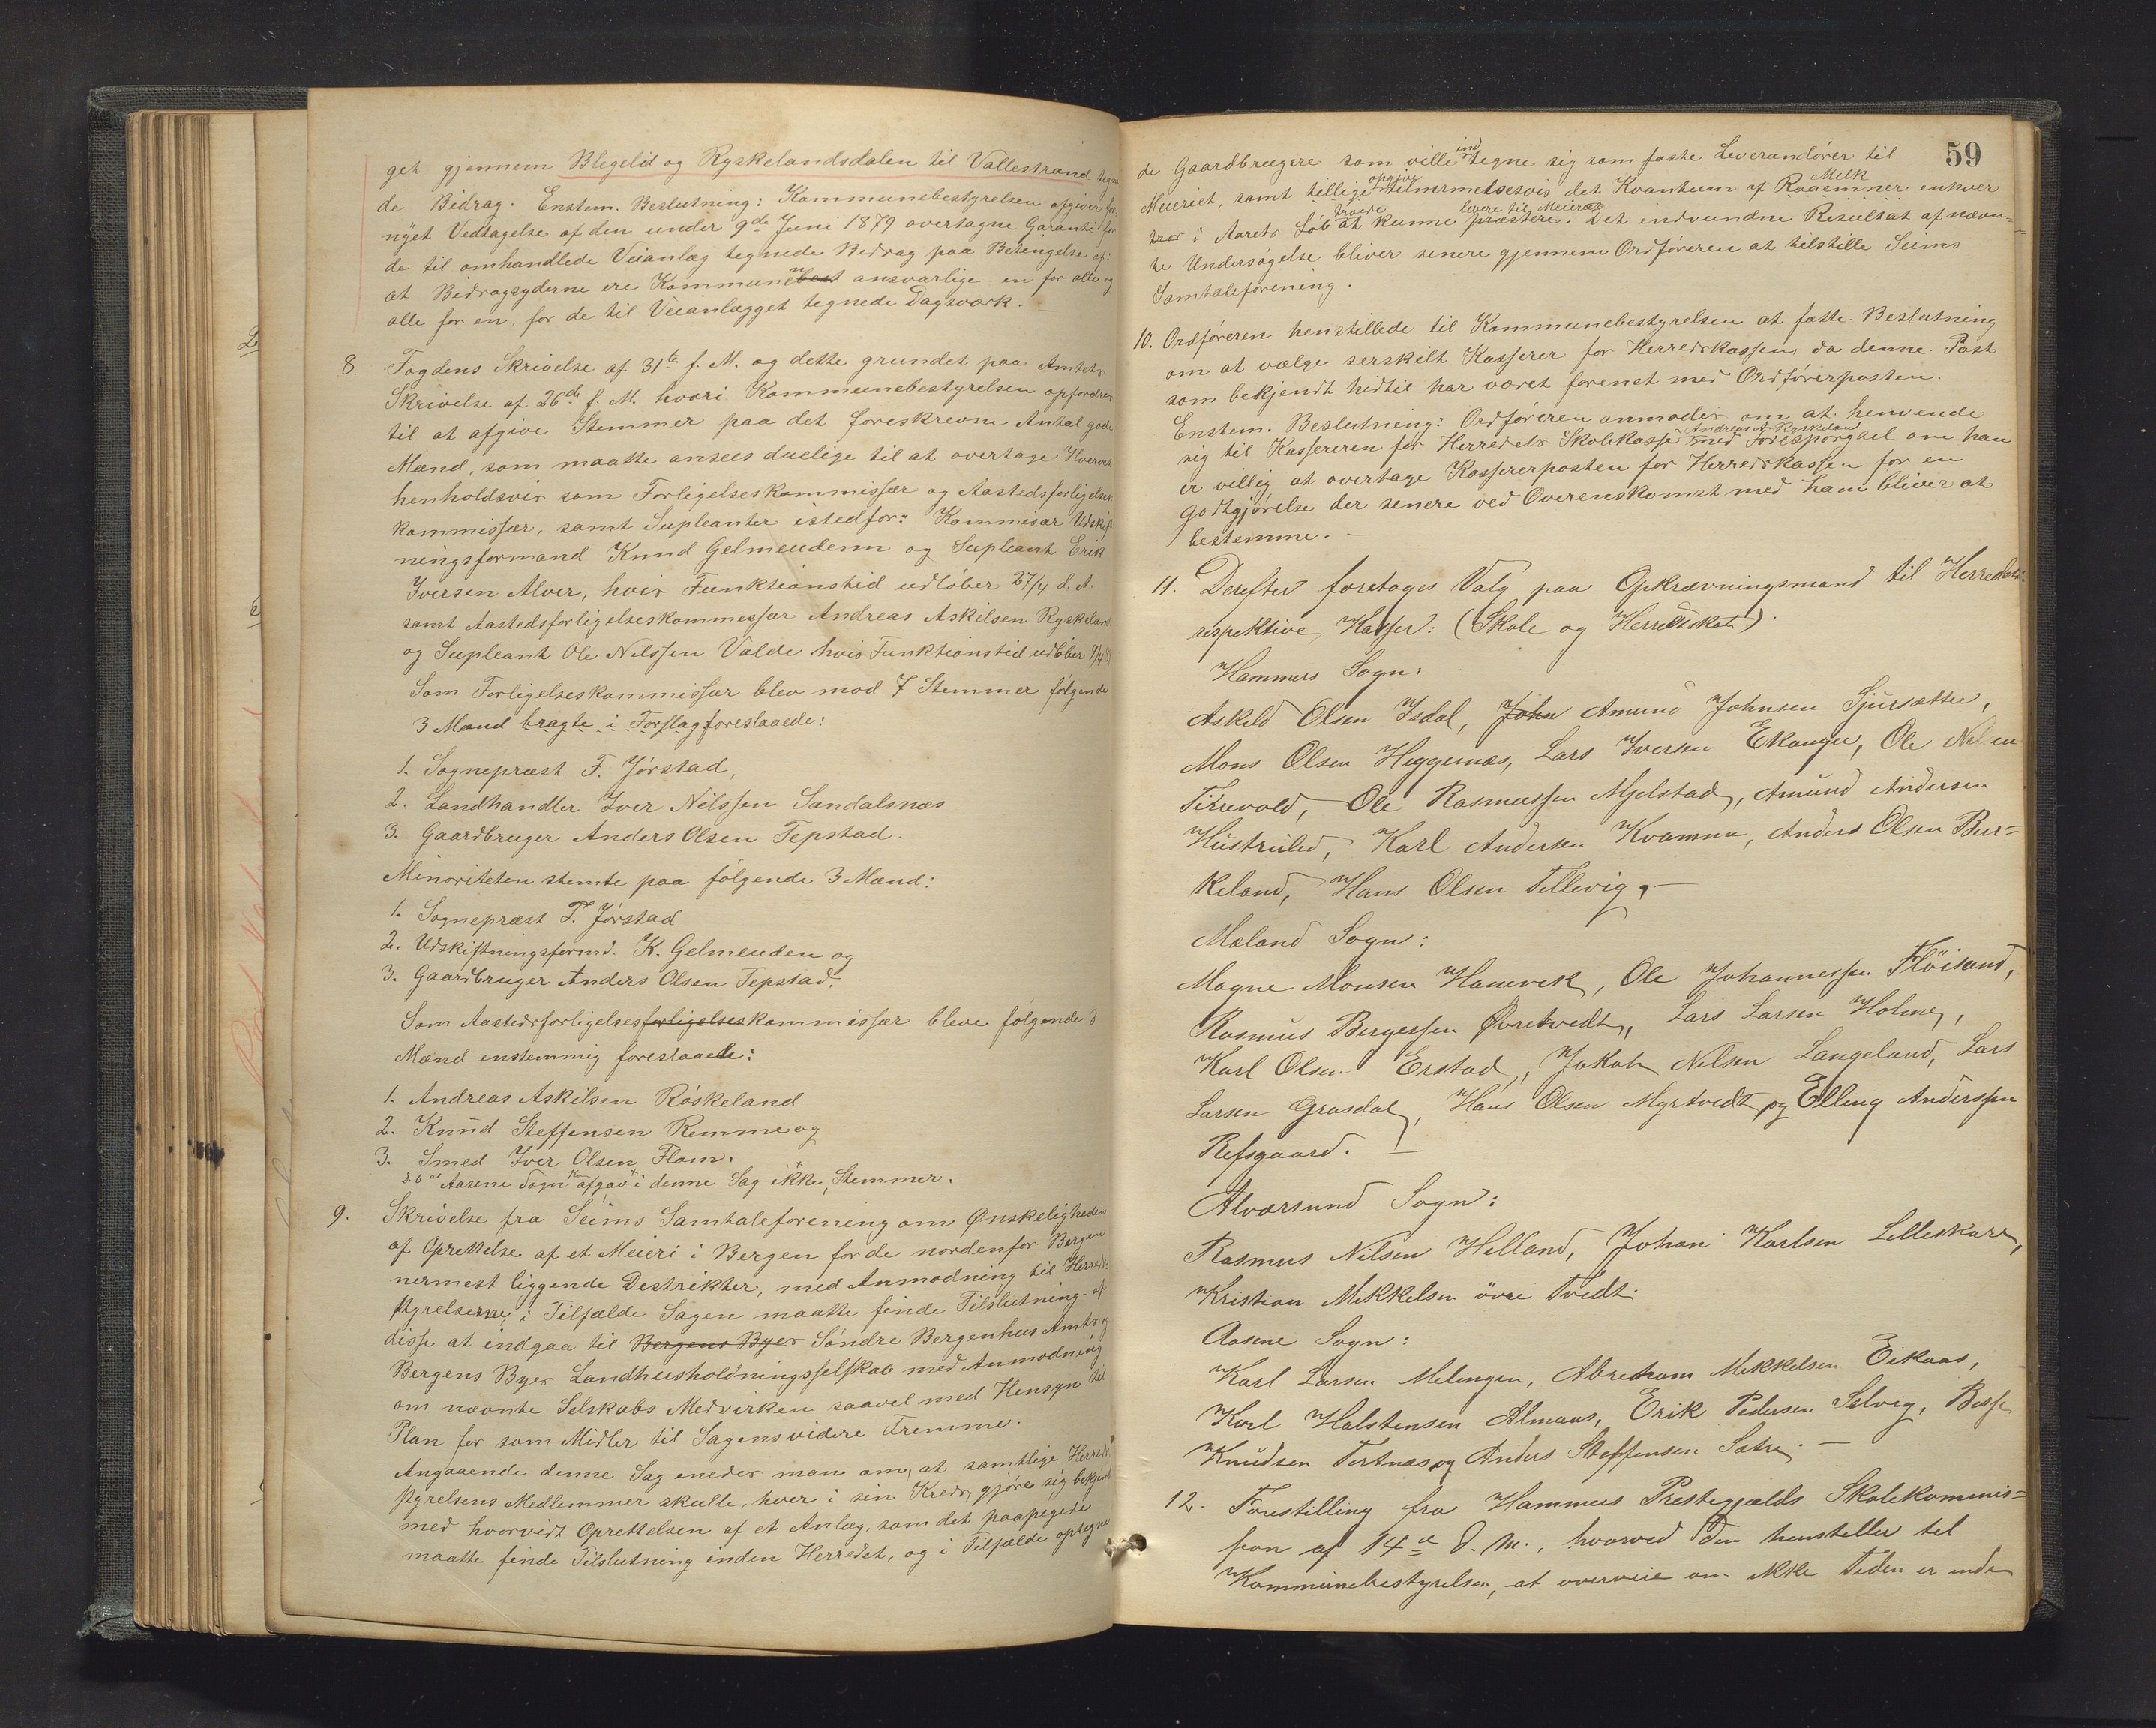 get gjennem Blegelid og Ryskelandsdalen til Vallestrand tegne
de Bidrag. Enstem. Beslutning: Kommunebestyrelsen afgiver for
nyet Vedtagelse af den under 9de Juni 1879 overtagne Garanti for
de til omhandlede Veianlæg tegnede Bidrag paa Betingelse af:
at Bidragsyderne ere Kommunen best ansvarlige en for alle og
alle for en, for de til Veianlægget tegnede Dagsværk.
8. Fogdens Skrivelse af 31te f. M. og dette grundet paa Amtets
Skrivelse af 26de f. M. hvori Kommunebestyrelsen opfordres
til at afgive Stemmer paa det foreskrevne Antal gode
Mænd, som maatte ansees duelige til at overtage Hvervet
henholdsvis som Forligelseskommissær og Aastedsforligelses
kommissær, samt Supleanter istedfor: Kommisær Udskift
ningsformand Knud Gelmeudenn og Supleant Erik
Iversen Alver, hvis Funktionstid udløber 27/4 d. A.
samt Aastedsforligelseskommessær Andreas Askilsen Ryskeland
og Supleant Ole Nilssen Valde hvis Funktionstid udløber 9/4
Som Forligelseskommissær blev mod 7 Stemmer følgende
3 Mænd bragte i Forslag foreslaaede:
1. Sognepræst F. Jørstad,
2. Landhandler Iver Nilssen Sandalsnæs
3. Gaardbruger Anders Olsen Tepstad.
Minoriteten stemte paa følgende 3 Mænd:
1. Sognepræst F. Jørstad
2. Udskiftningsformd. K. Gelmeuden og
3. Gaardbruger Anders Olsen Tepstad.
Som Aastedsforligelsesforligelseskommissær bleve følgende 3
Mænd enstemmig foreslaaede:
1. Andreas Askilsen Røskeland
2. Knud Steffensen Remme og
3. Smed Iver Olsen Flam.
Aasene Sogn afgav i denne Sag ikke Stemmer.
9. Skrivelse fra Seims Samtaleforening om Ønskeligheden
af Oprettelse af et Meieri i Bergen for de nordenfor Bergen
nermest liggende Destrikter, med Anmodning til Herreds
styrelserne, i Tilfælde Sagen maatte finde Tilslutning af
disse at indgaa til Bergens Byes Søndre Bergenhus Amts og
Bergens Byes Landhusholdningsselskab med Anmodning
om nævnte Selskabs Medvirken saavel med Hensyn til
Plan for som Midler til Sagens videre Fremme.
Angaaende denne Sag enedes man om, at samtlige Herreds
styrelsens Medlemmer skulle, hver i sin Kreds, gjøre sig bekjent
med hvorvidt Oprettelsen af et Anlæg, som det paapegede
maatte finde Tilslutning inden Herredet, og i Tilfælde optegne
59
de Gaardbrugere som ville indtegne sig som faste Leverandører til
Meieriet, samt tillige opgive tilnermelsesvis det Kvantum af Raaemner Melk enhver
tror i Aarets Løb troede at kunne præstere levere til Meieriet. Det indvundne Resultat af nævn-
te Undersøgelse bliver senere gjennem Ordføreren at tilstille Seims
Samtaleforening.
10. Ordføreren henstillede til Kommunebestyrelsen at fatte Beslutning
om at vælge serskilt Kasserer for Herredskassen, da denne Post
som bekjendt hidtil har været forenet med Ordførerposten.
Enstem. Beslutning: Ordføreren anmodes om at henvende
sig til Kassereren for Herredets Skolekasse Andreas A. Ryskeland med Forespørgsel om han
er villig at overtage Kassererposten for Herredskassen for en
godtgjørelse der senere ved Overenskomst med ham bliver at
bestemme. —
11. Derefter foretages Valg paa Opkrævningsmænd til Herredets
respektive Kasser: (Skole og Herredskat).
Hammers Sogn:
Askeld Olsen Isdal, John Amund Johnsen Sjursætter,
Mons Olsen Heggernæs, Lars Iversen Ekanger, Ole Nilsen
Titrevold, Ole Rasmussen Mjelstad, Amund Andersen
Hustruled, Karl Andersen Kvamme, Anders Olsen Bur-
keland, Hans Olsen Tellevig. —
Mæland Sogn:
Magne Monsen Hanevik, Ole Johannessen Fløisand,
Rasmus Bergessen Øvretvedt, Lars Larsen Holme,
Karl Olsen Erstad, Jakob Nilsen Langeland, Lars
Larsen Grasdal, Hans Olsen Myrtvedt og Elling Anderssen
Refsgaard. —
Alværsund Sogn:
Rasmus Nilsen Helland, Johan Karlsen Lilleskare,
Kristian Mikkelsen øvre Tvedt.
Aasene Sogn:
Karl Larsen Milingen, Abraham Mikkelsen Eikaas,
Karl Halstensen Almaas, Erik Pedersen Selvig, Besse
Knudsen Tertnæs og Anders Steffensen Sætre. —
12. Forestilling fra Hammers Prestegjælds Skolekommis-
sion af 14de d. M., hvorved den henstiller til
Kommunebestyrelsen, at overveie om ikke Tiden er inde